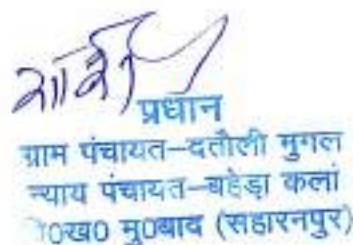 प्रधान
ग्राम पंचायत-दतौली मुगल
न्याय पंचायत-बहेड़ा कलां
0ख0 मु0बाद (सहारनपुर)